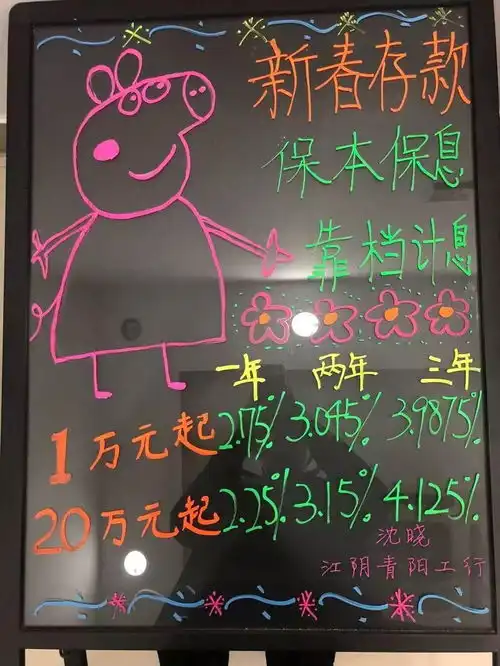 新春存款
保本保息
靠档计息
一年 两年 三年
1万元起 2.75% 3.045% 3.9875%
20万元起 2.25% 3.15% 4.125%
沈晓
江阴青阳工行